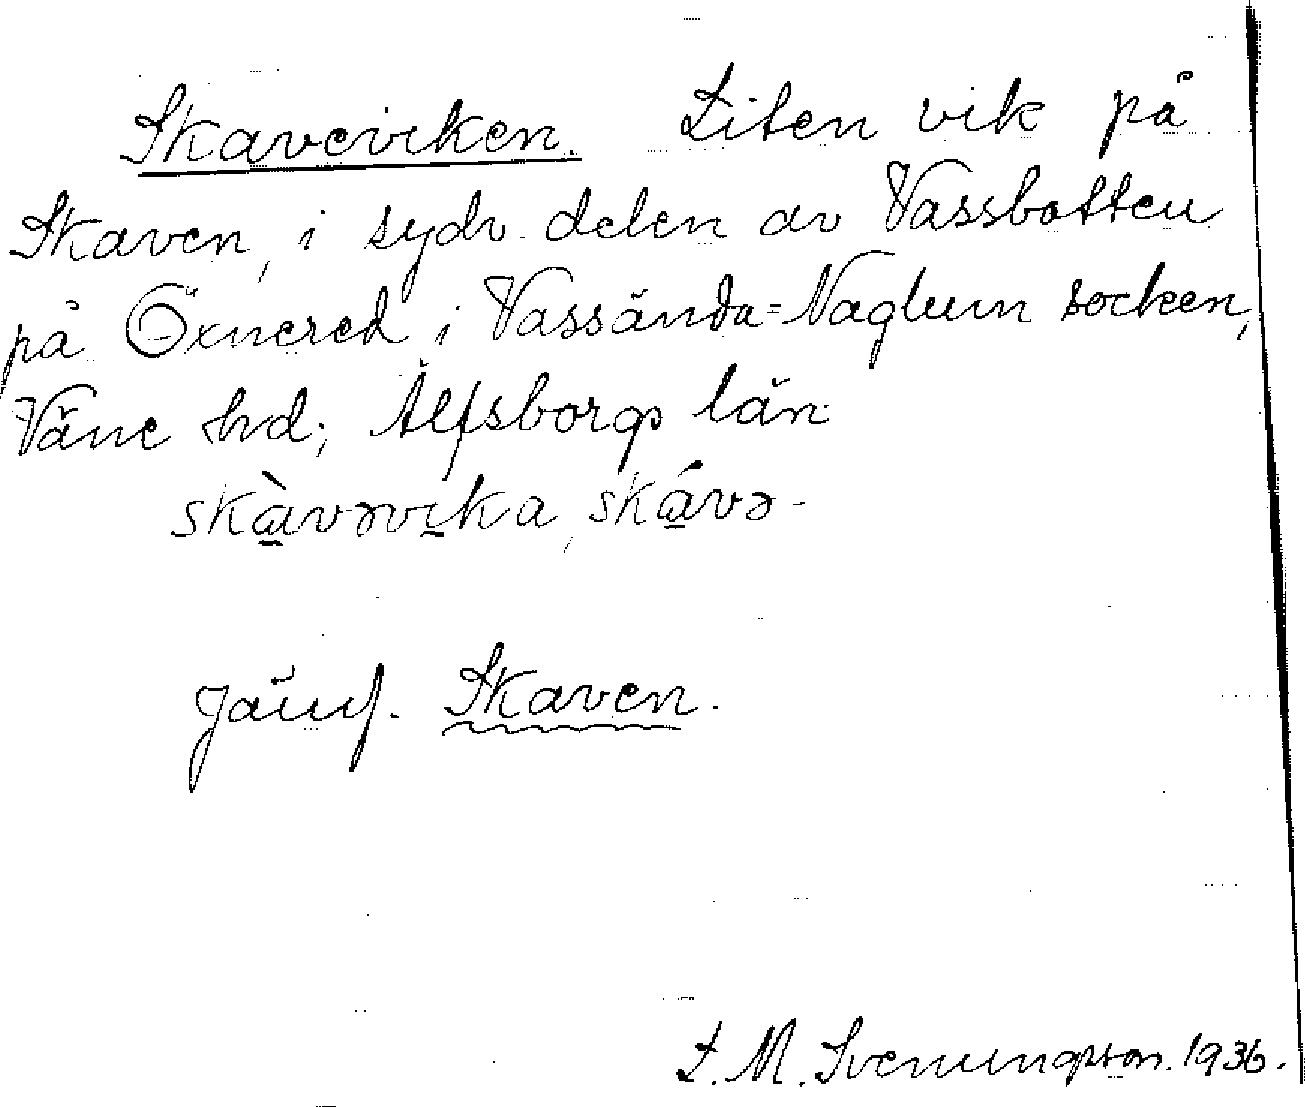 Skaveviken. Liten vik på
Skaven, i sydv. delen av Vassbotten
på Öxnered i Vassända=Naglum socken,
Väne hd; Älfsborgs län
skàvəvika, skávə-
Jämf. Skaven.
L. M. Svenungsson. 1936.